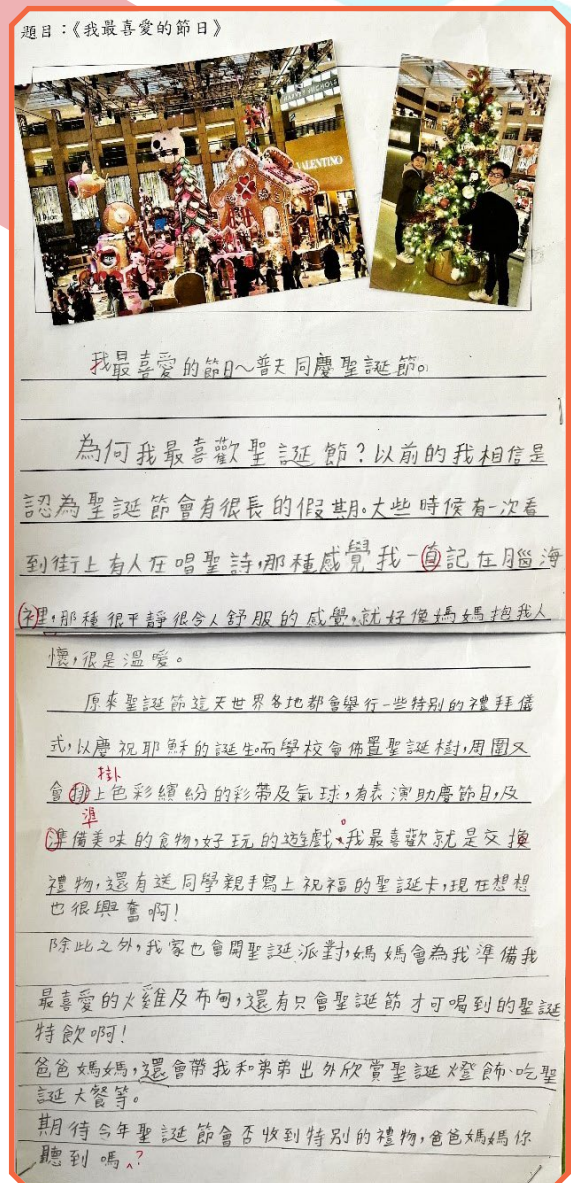 題目：《我最喜愛的節日》
VALENTINO
我最喜愛的節日～普天同慶聖誕節。
為何我最喜歡聖誕節？以前的我相信是
認為聖誕節會有很長的假期。大些時候有一次看
到街上有人在唱聖詩，那種感覺我一直記在腦海
裡，那種很平靜很令人舒服的感覺，就好像媽媽抱我入
懷，很是溫暖。
原來聖誕節這天世界各地都會舉行一些特別的禮拜儀
式，以慶祝耶穌的誕生。而學校會佈置聖誕樹，周圍又
掛
會排上色彩繽紛的彩帶及氣球，有表演助慶節目，及
準
準備美味的食物，好玩的遊戲。我最喜歡就是交換
禮物，還有送同學親手寫上祝福的聖誕卡，現在想想
也很興奮啊！
除此之外，我家也會開聖誕派對，媽媽會為我準備我
最喜愛的火雞及布甸，還有只會聖誕節才可喝到的聖誕
特飲啊！
爸爸媽媽，還會帶我和弟弟出外欣賞聖誕燈飾、吃聖
誕大餐等。
期待今年聖誕節會否收到特別的禮物，爸爸媽媽你
聽到嗎？